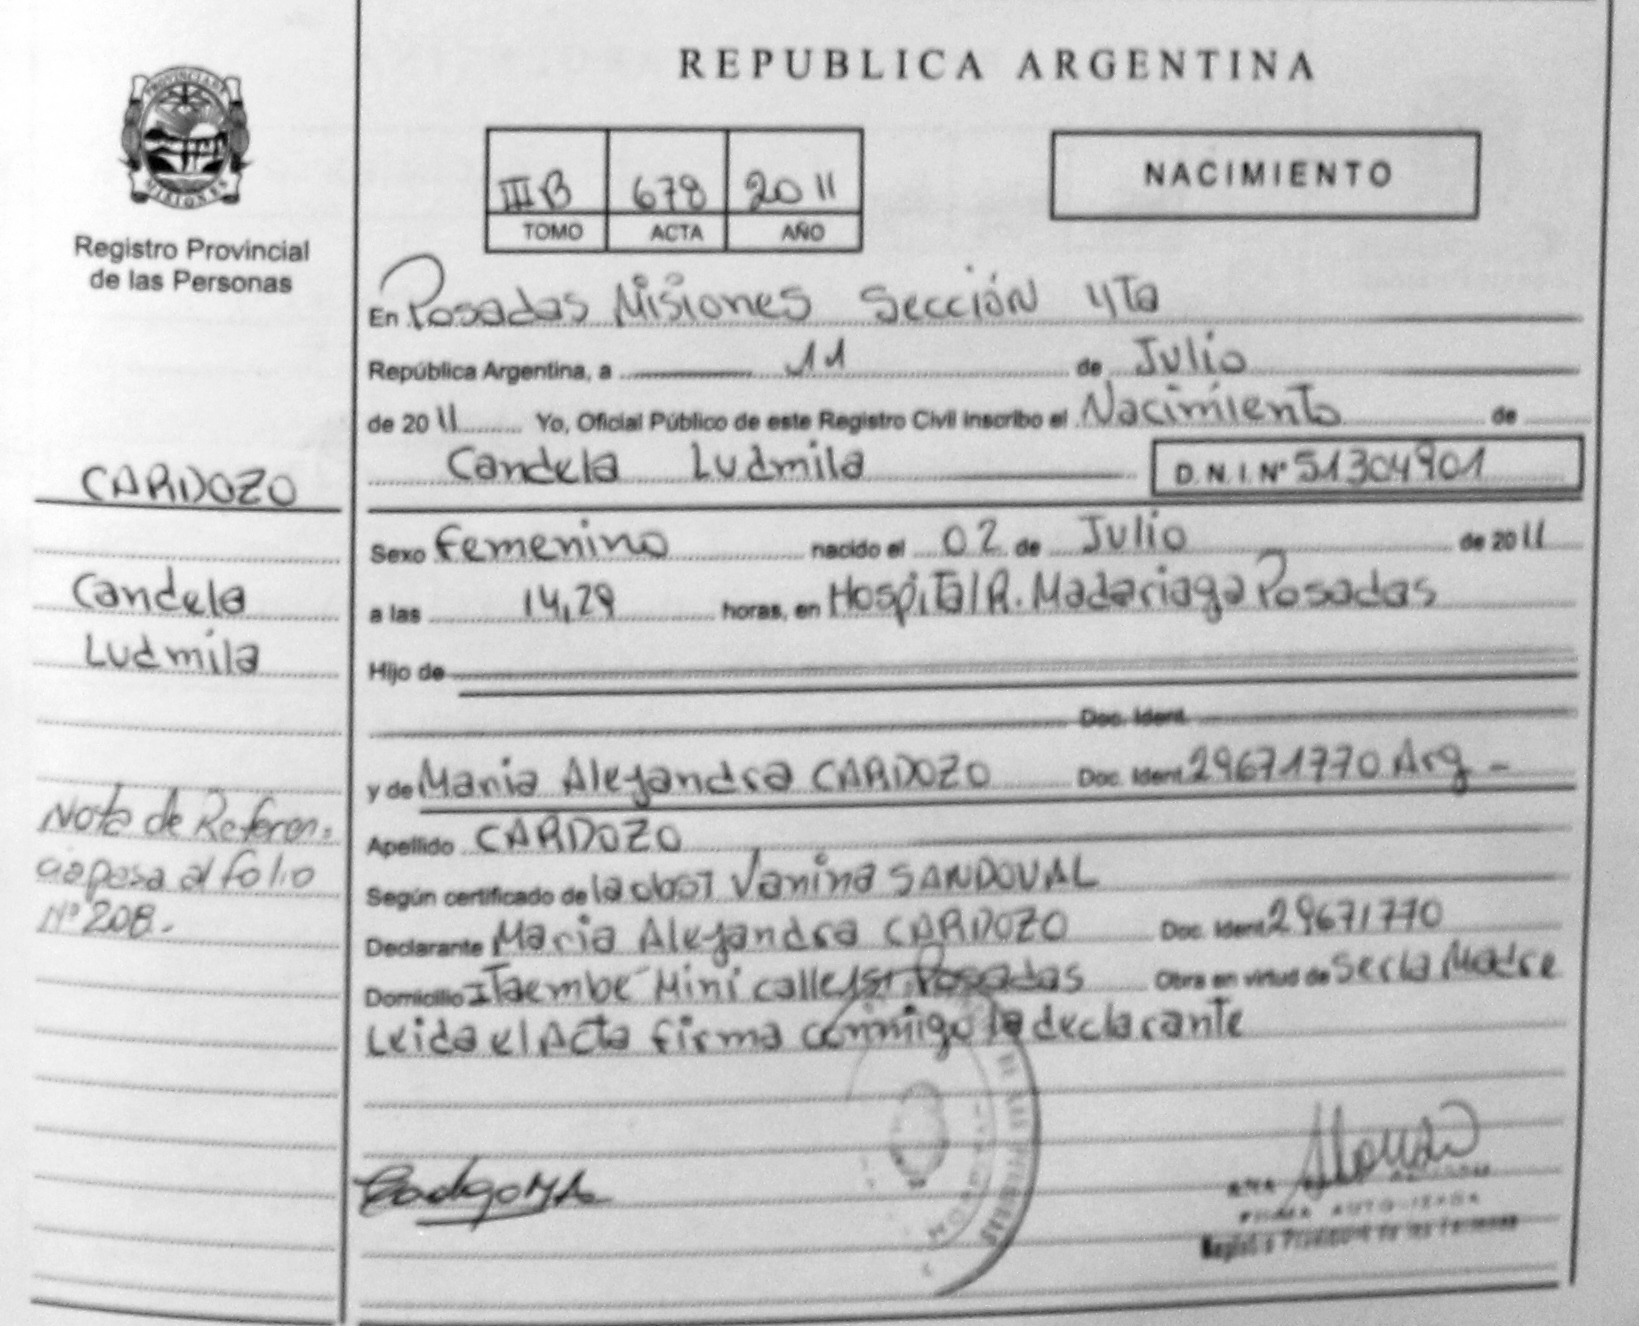 REPUBLICA ARGENTINA
PROVINCIA DE
MISIONES
Registro Provincial
de las Personas
III B 678 2011
TOMO ACTA AÑO
NACIMIENTO
En Posadas Misiones Sección 4Ta
República Argentina, a 11 de Julio
de 2011 Yo, Oficial Público de este Registro Civil inscribo el Nacimiento de
Candela Ludmila D.N.I. Nº 51304901
CARDOZO
Sexo Femenino nacido el 02 de Julio de 2011
Candela
a las 14,29 horas, en Hospital R. Madariaga Posadas
Ludmila
Hijo de
Doc. Ident.
y de Maria Alejandra CARDOZO Doc. Ident 29671770 Arg -
Nota de Referen-
Apellido CARDOZO
cia pasa al folio
Según certificado de la obst Vanina SANDOVAL
Nº 208.-
Declarante Maria Alejandra CARDOZO Doc. Ident 29671770
Domicilio Itaembe Mini calle Posadas Obra en virtud de Ser la Madre
Leida el Acta firma conmigo la declarante
DE LAS PERSONAS
Registro Provincial de las Personas